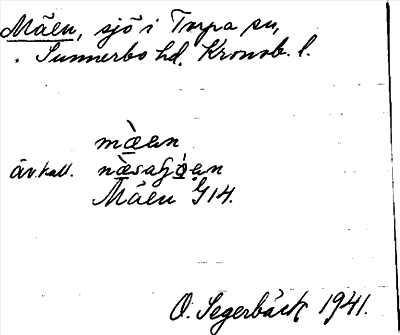 Måen, sjö i Torpa sn,
Sunnerbo hd. Kronob. l.
mὰen
äv. kall. nὰsasjo̧en
Måen G14.
O. Segerbäck 1941.